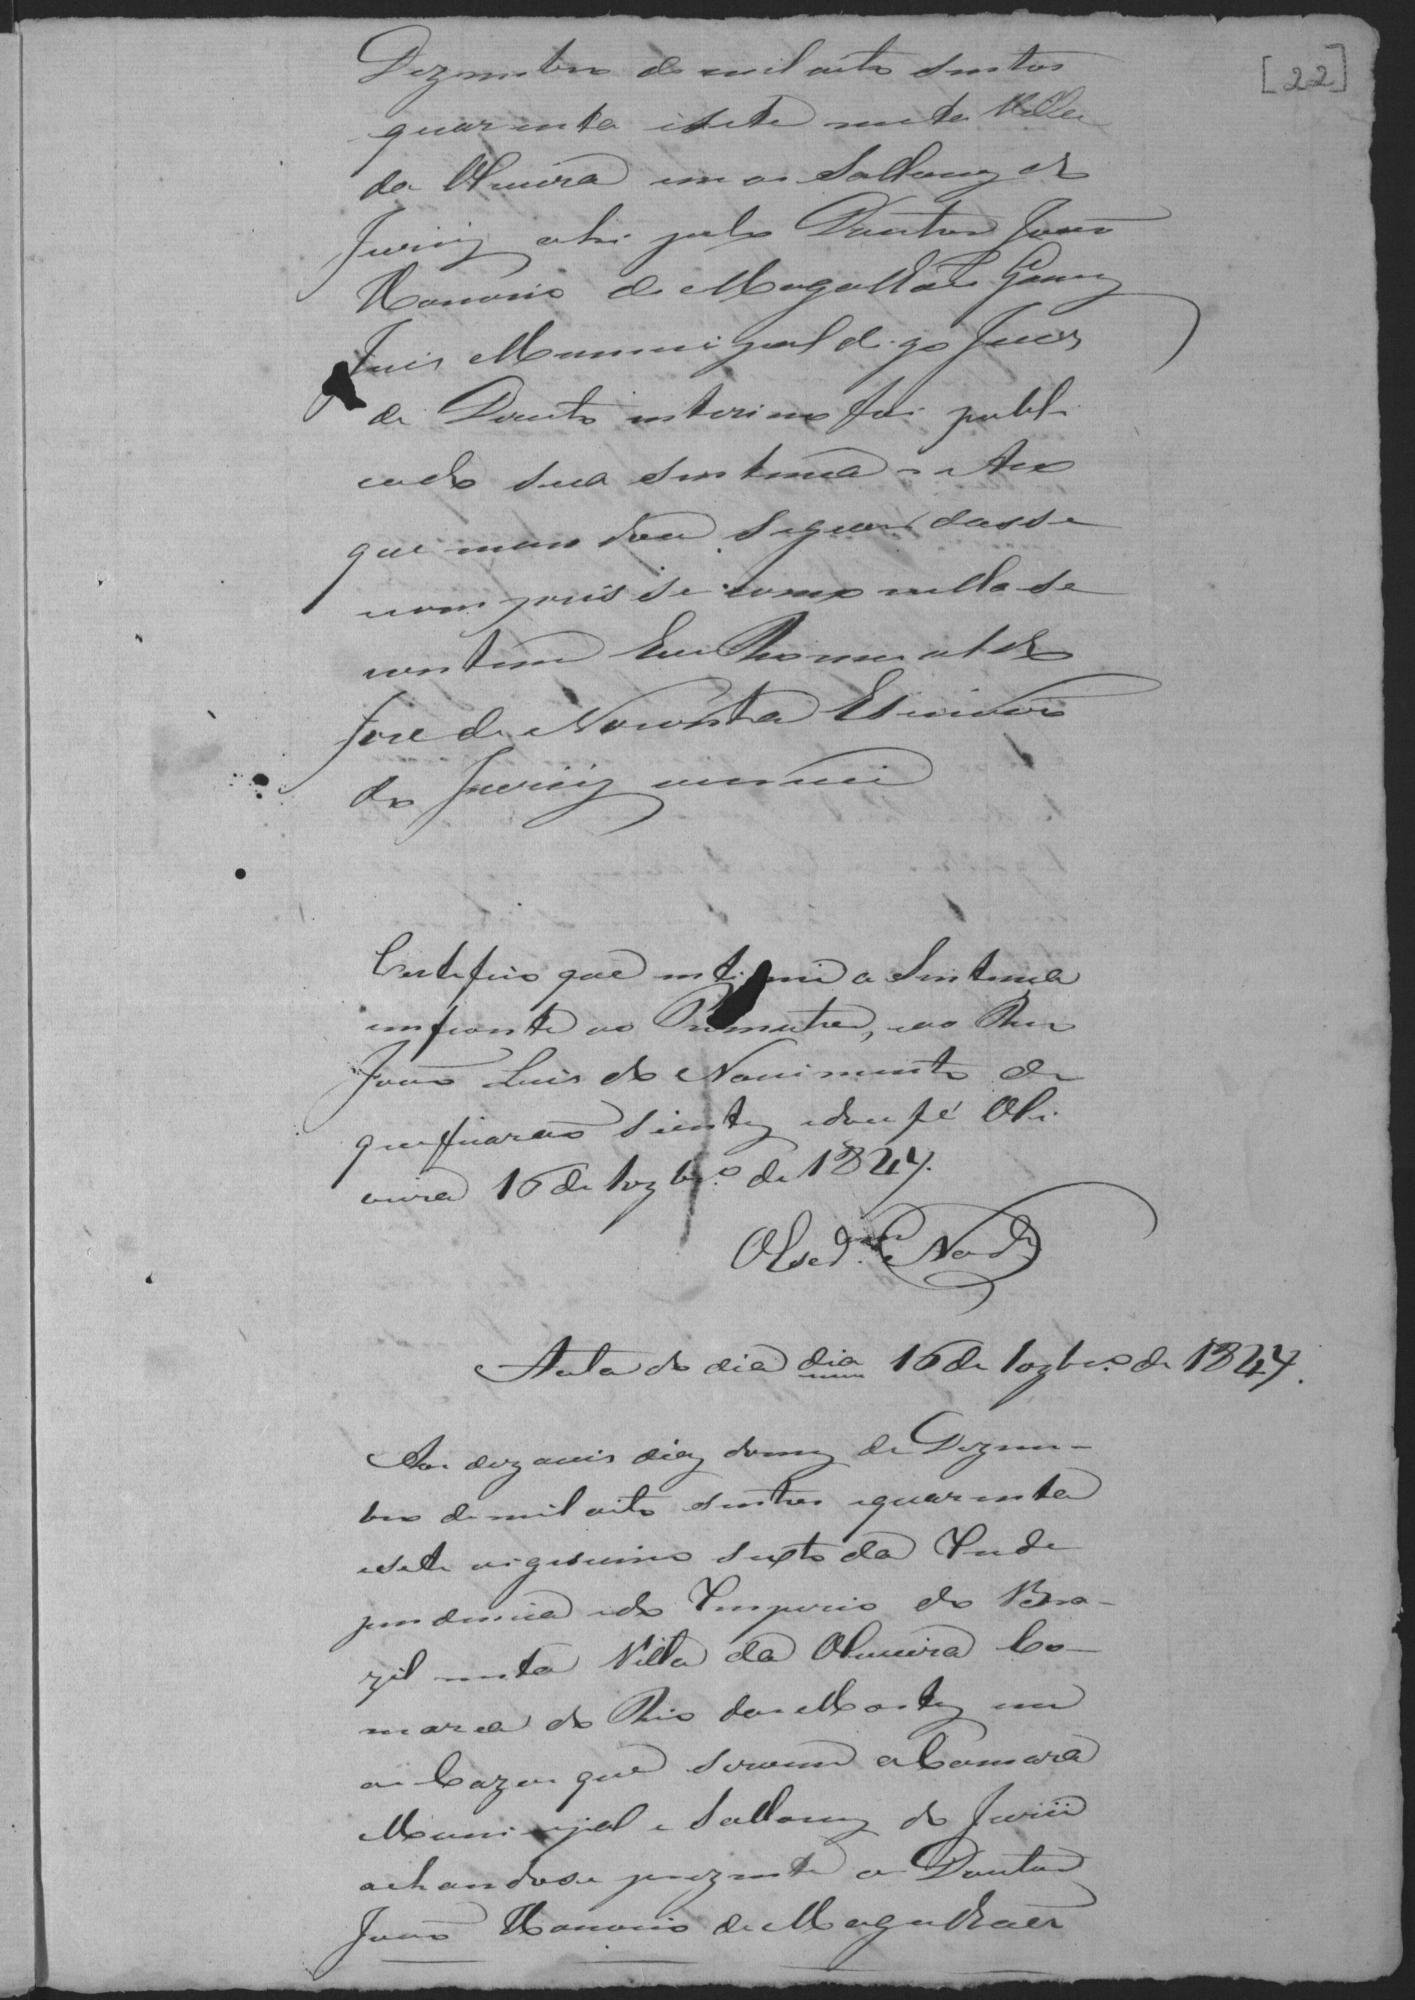 [22]
Dezembro de mil oito sentos
quarenta esete nesta Villa
da Oliveira em as Sallas do
Juris ahi pelo Doutor João
Honorio de Magalhães Gomes
Juis Municipal digo Juis
de Direito interino foi publi
cado sua sentença
que mandou seguardasse
comprisse como nella se
contem Eu Romualdo
José de Noronha Escrivão
do Juriis escrevi
Certefico que intimei a Sentença
emfronte ao Promutor, eao Reu
João Luis do Nascimento de
queficarão Sientes edou fé Oli
veira 16 de 10zbr.o de 1847.
Acta do dia dia 16 de 10zbr.o de 1847.
Aos dezaceis dias domes de Dezem-
bro demil oito sentos equarenta
esete vigesimo sexto da Inde
pendencia edo Imperio do Bra-
zil nesta Villa da Oliveira Co-
marca do Rio das Mortes em
as Cazas que servem a Camara
Municipal e Sallas do Jurii
achandose prezente o Doutor
João Honorio de Magalhães